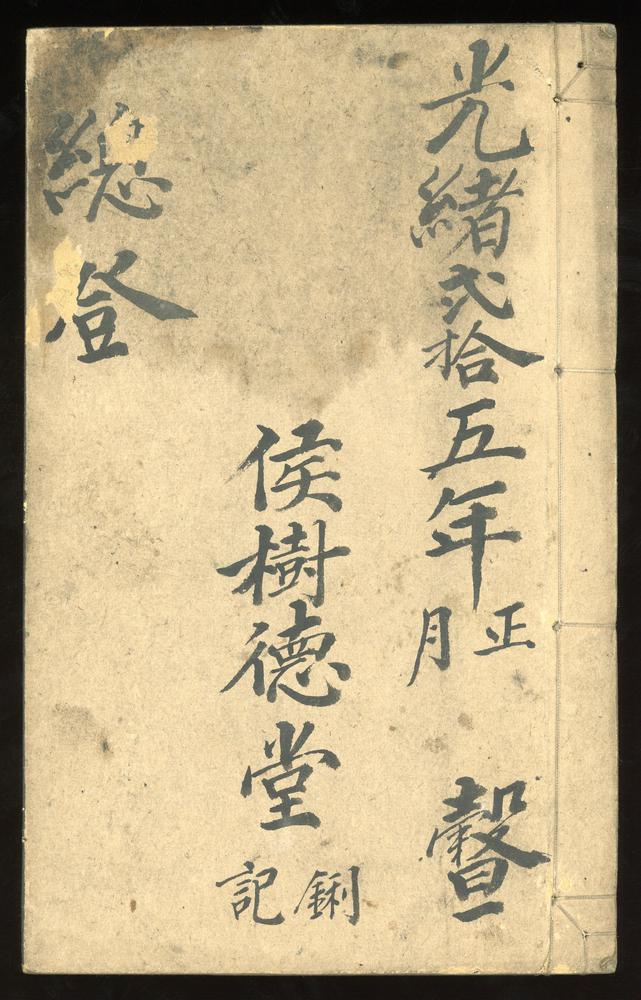 光緒弍拾五年正月
侯樹德堂
記
總登